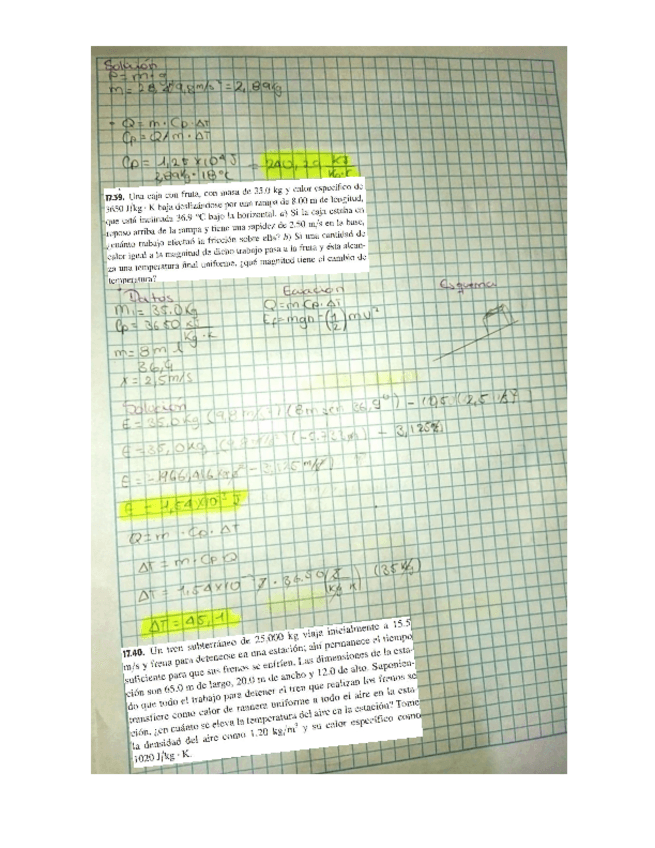 Solución
P = m·g
m = 28,4 / 9,8 m/s² = 2,89 Kg
- Q = m · Cp · ΔT
Cp = Q/m · ΔT
Cp = 1,25 x 10⁴ J = 240,29 KJ
2,89 Kg · 18 °C Kg·K
17.39. Una caja con fruta, con masa de 35.0 kg y calor específico de
3650 J/kg · K baja deslizándose por una rampa de 8.00 m de longitud,
que está inclinada 36.9 °C bajo la horizontal. a) Si la caja estaba en
reposo arriba de la rampa y tiene una rapidez de 2.50 m/s en la base,
¿cuánto trabajo efectuó la fricción sobre ella? b) Si una cantidad de
calor igual a la magnitud de dicho trabajo pasa a la fruta y ésta alcan-
za una temperatura final uniforme, ¿qué magnitud tiene el cambio de
temperatura?
Datos Ecuación Esquema
m = 35.0 Kg Q = m Cp · ΔT
Cp = 3650 Kg·K
m = 8 m
36,9
x = 2,5 m/s
Solución
E = 35.0 Kg (8 m sen 36,9°) - (2,5
E = 35,0 Kg - 3,125
E = -1966,416
E = 1,54 x 10³ J
Q = m · Cp · ΔT
ΔT = m · Cp Q
ΔT = 1,54 x 10 (35 Kg)
ΔT = 45,1
17.40. Un tren subterráneo de 25,000 kg viaja inicialmente a 15.5
m/s y frena para detenerse en una estación; ahí permanece el tiempo
suficiente para que sus frenos se enfríen. Las dimensiones de la esta-
ción son 65.0 m de largo, 20.0 m de ancho y 12.0 de alto. Suponien-
do que todo el trabajo para detener el tren que realizan los frenos se
transfiere como calor de manera uniforme a todo el aire en la esta-
ción, ¿en cuánto se eleva la temperatura del aire en la estación? Tome
la densidad del aire como 1.20 kg/m³ y su calor específico como
1020 J/kg · K.